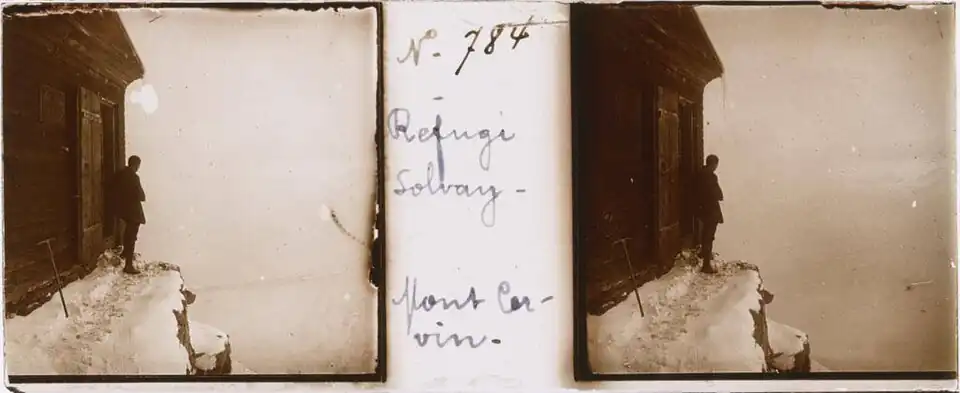 Nº 784
Refugi
Solvay -
Mont Cer-
vin.-